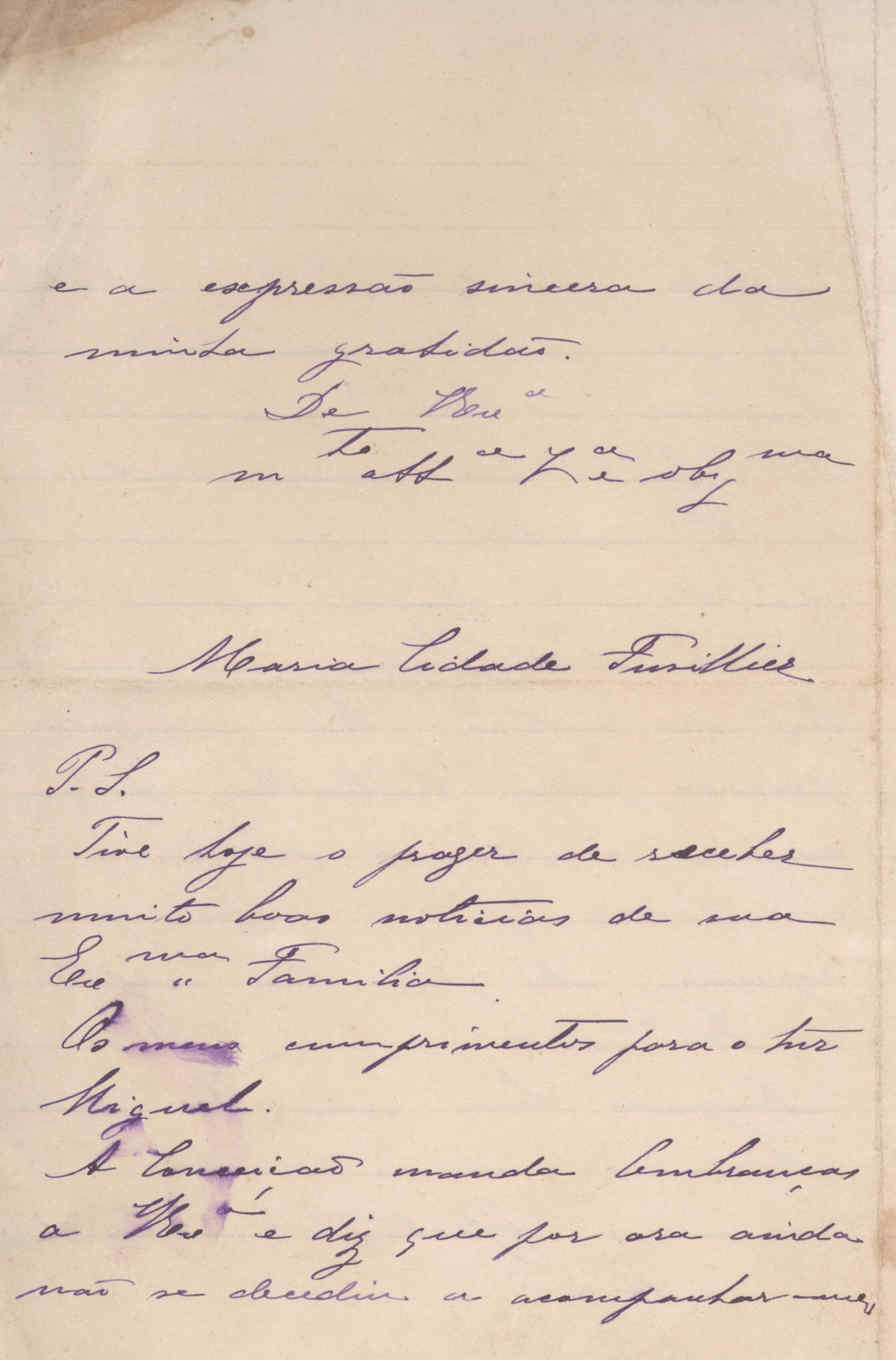 e a expressão sincera da
minha gratidão.
De VExª
mto attª Vª e obgma
Maria Cidade Fusillier
P.S.
Tive hoje o prazer de receber
muito boas noticias de sua
Exma Familia
Os meus cumprimentos para o Snr
Miguel.
A Conceição manda lembranças
a VExª e diz que por ora ainda
não se decediu a acompanhar-me,,